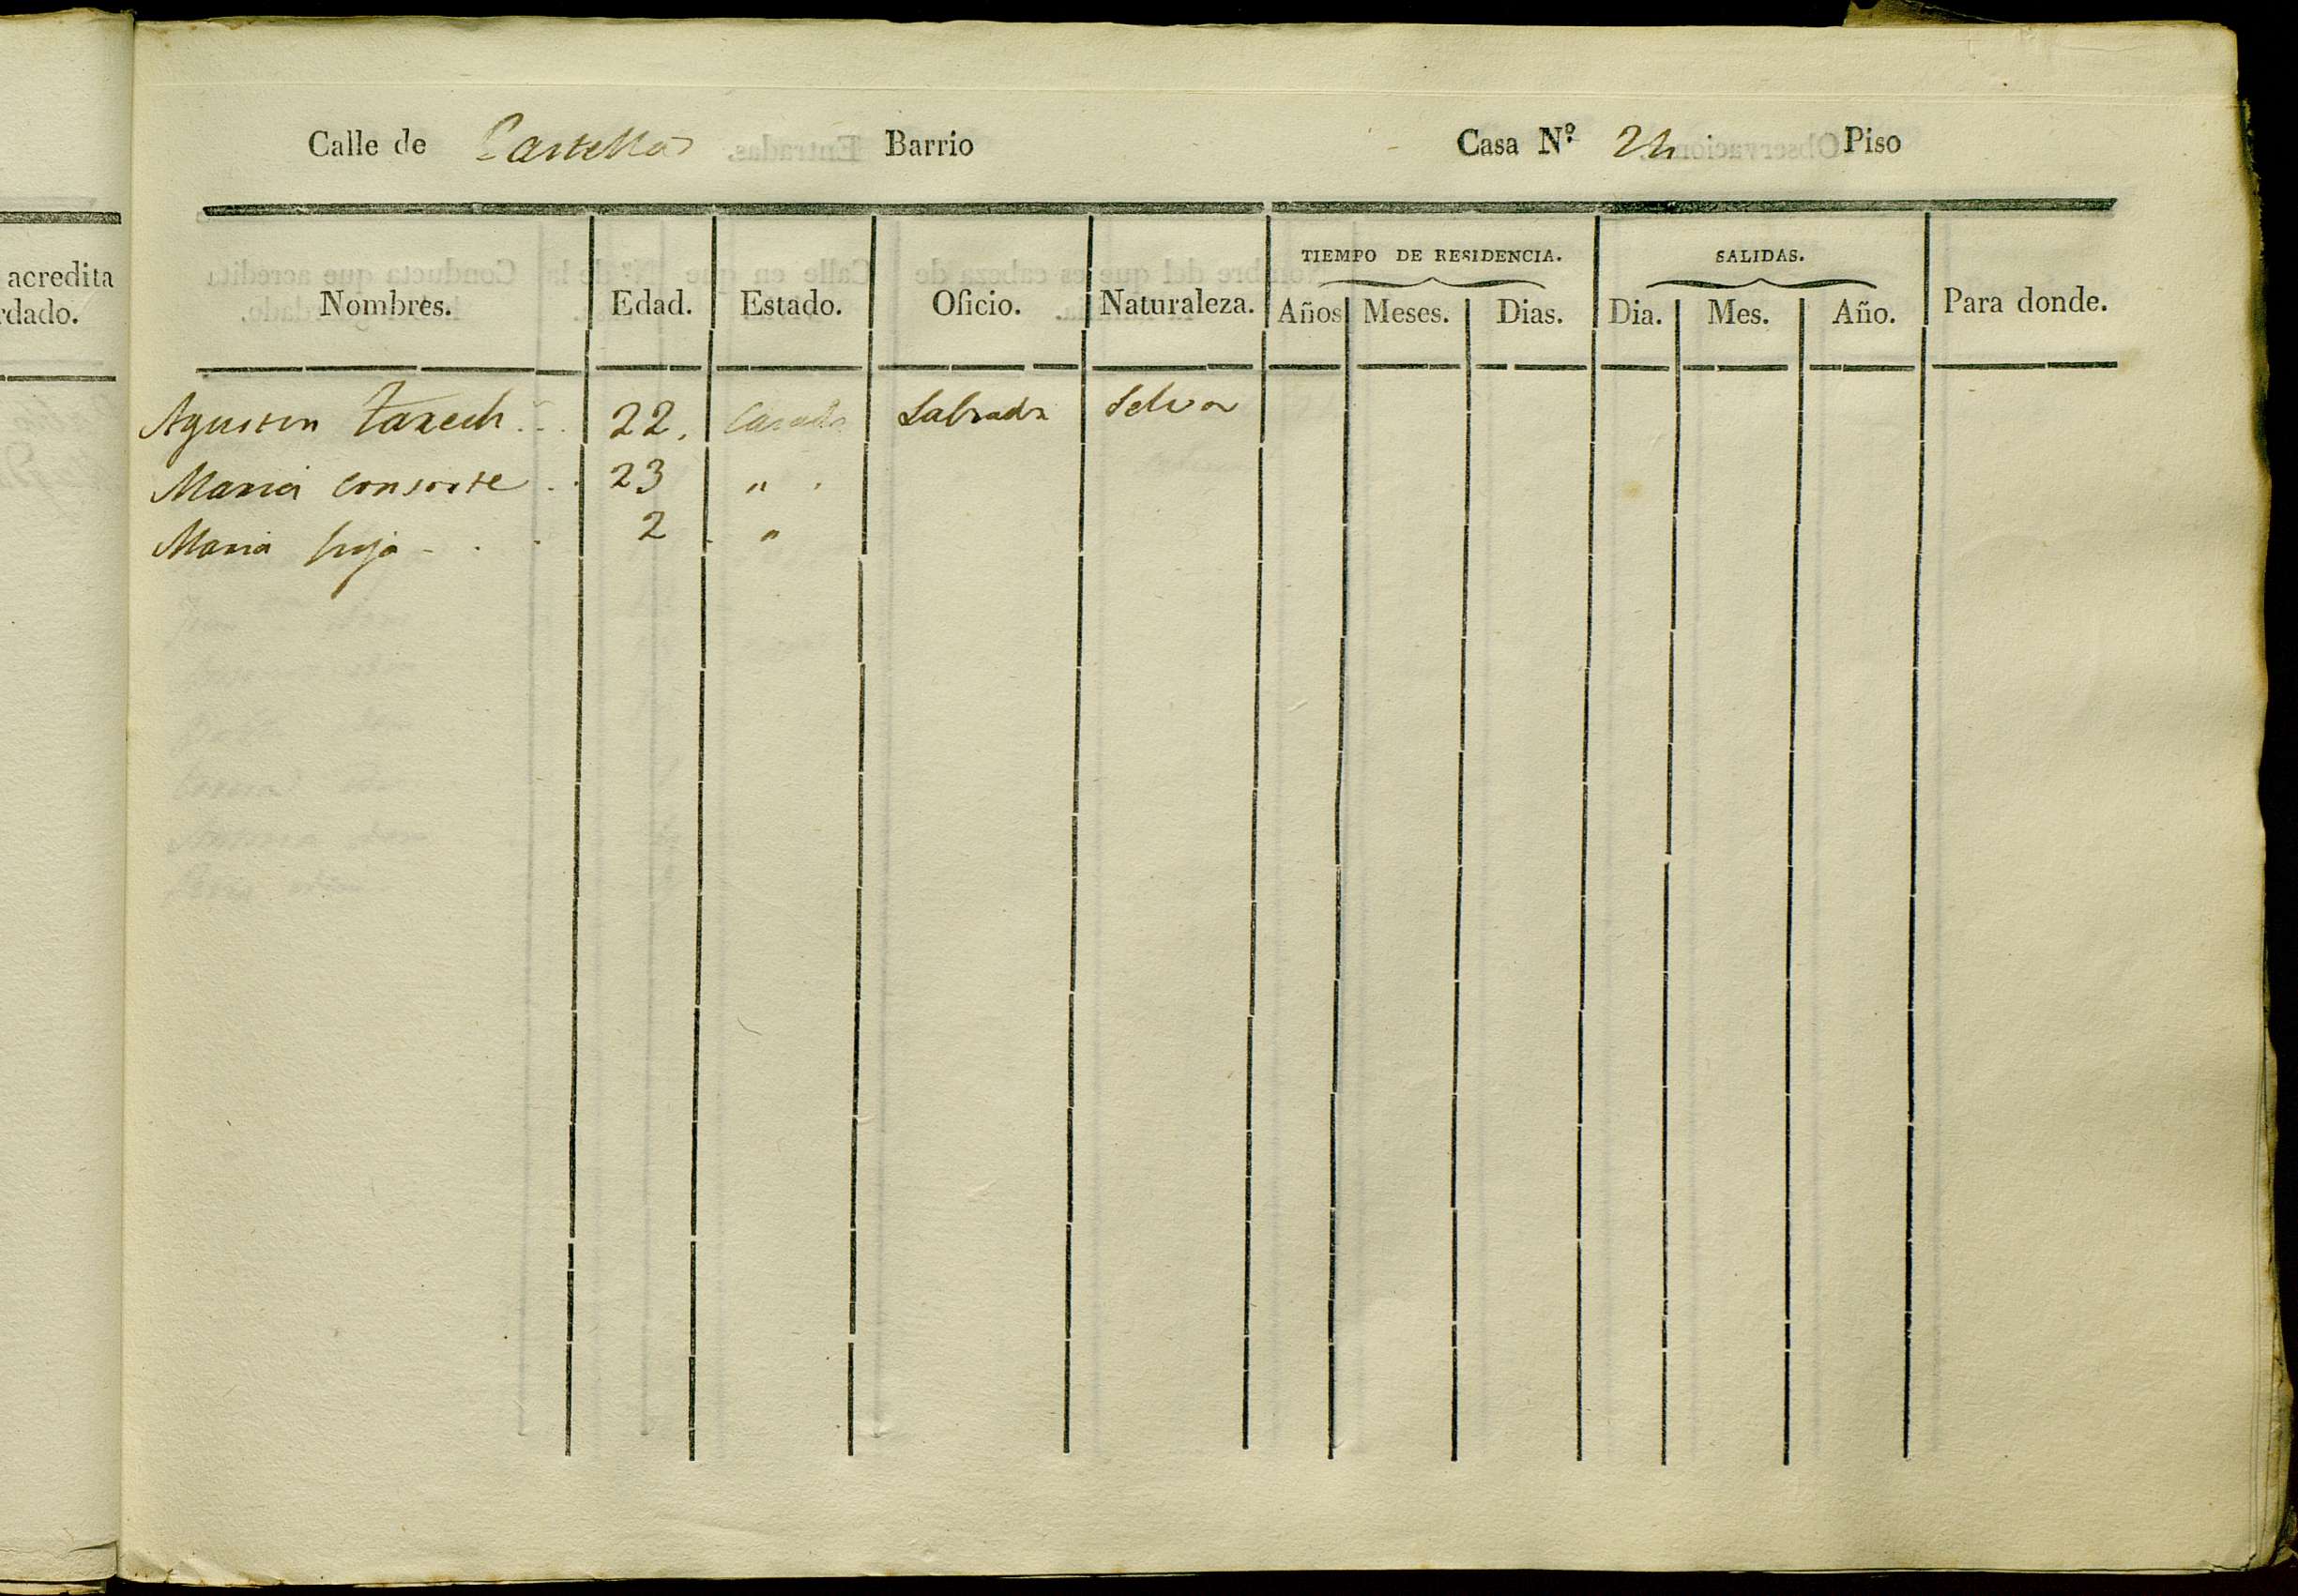 acredita
rdado.
Calle de Castellas Barrio Casa Nº 24 Piso
TIEMPO DE RESIDENCIA. SALIDAS.
Nombres. Edad. Estado. Oficio. Naturaleza. Años Meses. Dias. Dia. Mes. Año. Para donde.
Agustin Taxech 22. Casado Labrador Selva
Maria consorte 23 " .
Maria hija 2 "